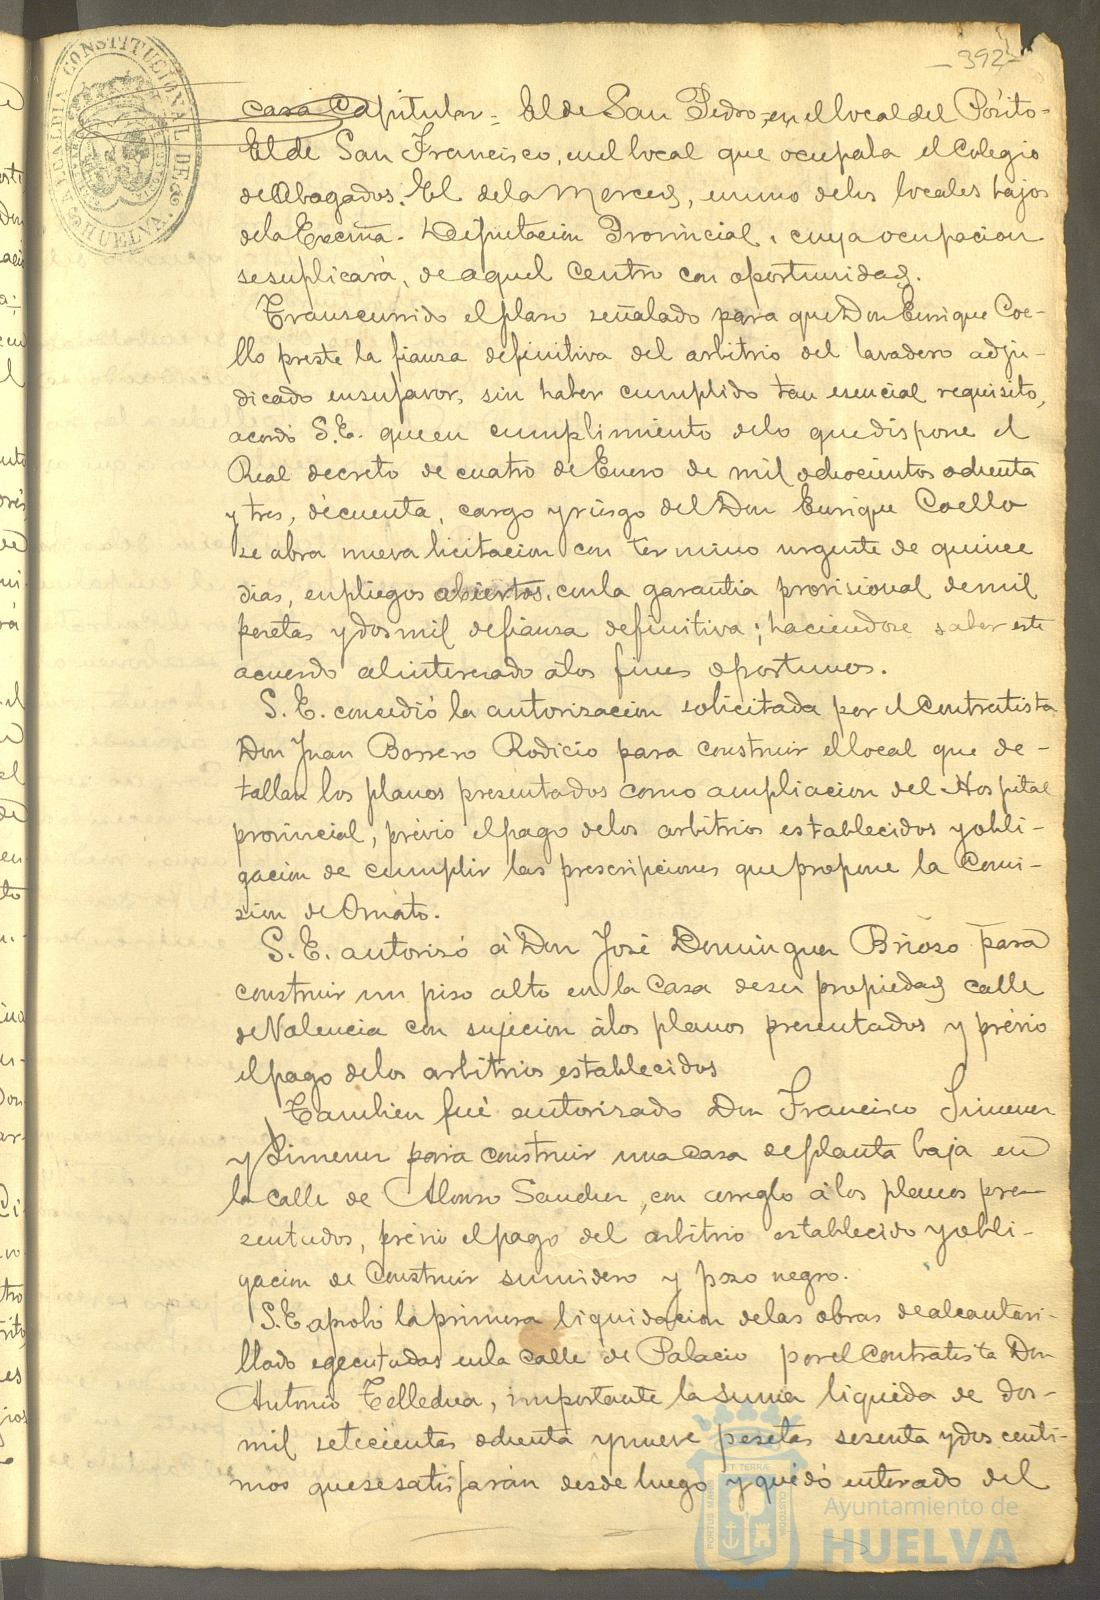 - 392 -
ALCALDIA CONSTITUCIONAL DE HUELVA
casa Capitular = El de San Pedro, en el local del Pósito-
El de San Francisco, en el local que ocupaba el Colegio
de Abogados. El de la Merced, en uno de los locales bajos
de la Excma. Diputación Provincial, cuya ocupación
se suplicará, de aquel Centro con oportunidad.
Transcurrido el plazo señalado para que Don Enrique Coe-
llo preste la fianza definitiva del arbitrio del lavadero adju-
dicado en su favor, sin haber cumplido tan esencial requisito,
acordó S.E. que en cumplimiento de lo que dispone el
Real decreto de cuatro de Enero de mil ochocientos ochenta
y tres, de cuenta, cargo y riesgo del Don Enrique Coello
se abra nueva licitacion con termino urgente de quince
dias, en pliegos abiertos, con la garantia provisional de mil
pesetas y dos mil de fianza definitiva; haciendose saber este
acuerdo al interesado á los fines oportunos.
S.E. concedió la autorización solicitada por el Contratista
Don Juan Borrero Rodicio para construir el local que de-
tallan los planos presentados como ampliacion del Hospital
provincial, prévio el pago de los arbitrios establecidos y obli-
gacion de cumplir las prescripciones que propone la Comi-
sion de Ornato.
S.E. autorizó á Don José Dominguez Brioso para
construir un piso alto en la Casa de su propiedad calle
de Valencia con sujecion á los planos presentados y prévio
el pago de los arbitrios establecidos
Tambien fué autorizado Don Francisco Jimenez
y Jimenez para construir una casa de planta baja en
la calle de Alonso Sanchez, con arreglo á los planos pre-
sentados, prévio el pago del arbitrio establecido y obli-
gacion de construir sumidero y pozo negro.
S.E. aprobó la primera liquidacion de las obras de alcantari-
llado egecutadas en la calle de Palacio por el Contratista Don
Antonio Telledua, importante la suma liquida de dos-
mil setecientas ochenta y nueve pesetas sesenta y dos centi-
mos que se satisfarán desde luego y quedó enterado del
Ayuntamiento de
HUELVA